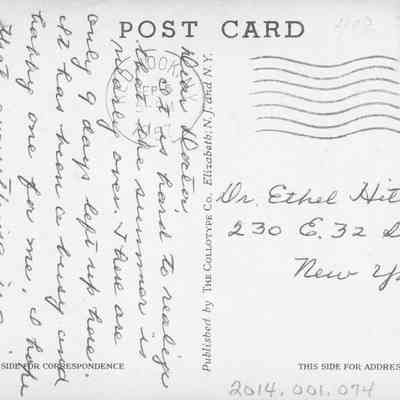 POST CARD
412
Dear Doctor,
It is hard to realize
that the summer is
nearly over. There are
only 9 days left up here.
It has been a busy and
happy one for me. I hope
that everything is
Published by THE COLLOTYPE CO. Elizabeth, N. J. and N.Y.
Dr. Ethel Hil
230 E. 32 S
New Y
SIDE FOR CORRESPONDENCE
THIS SIDE FOR ADDRES
2014.001.074